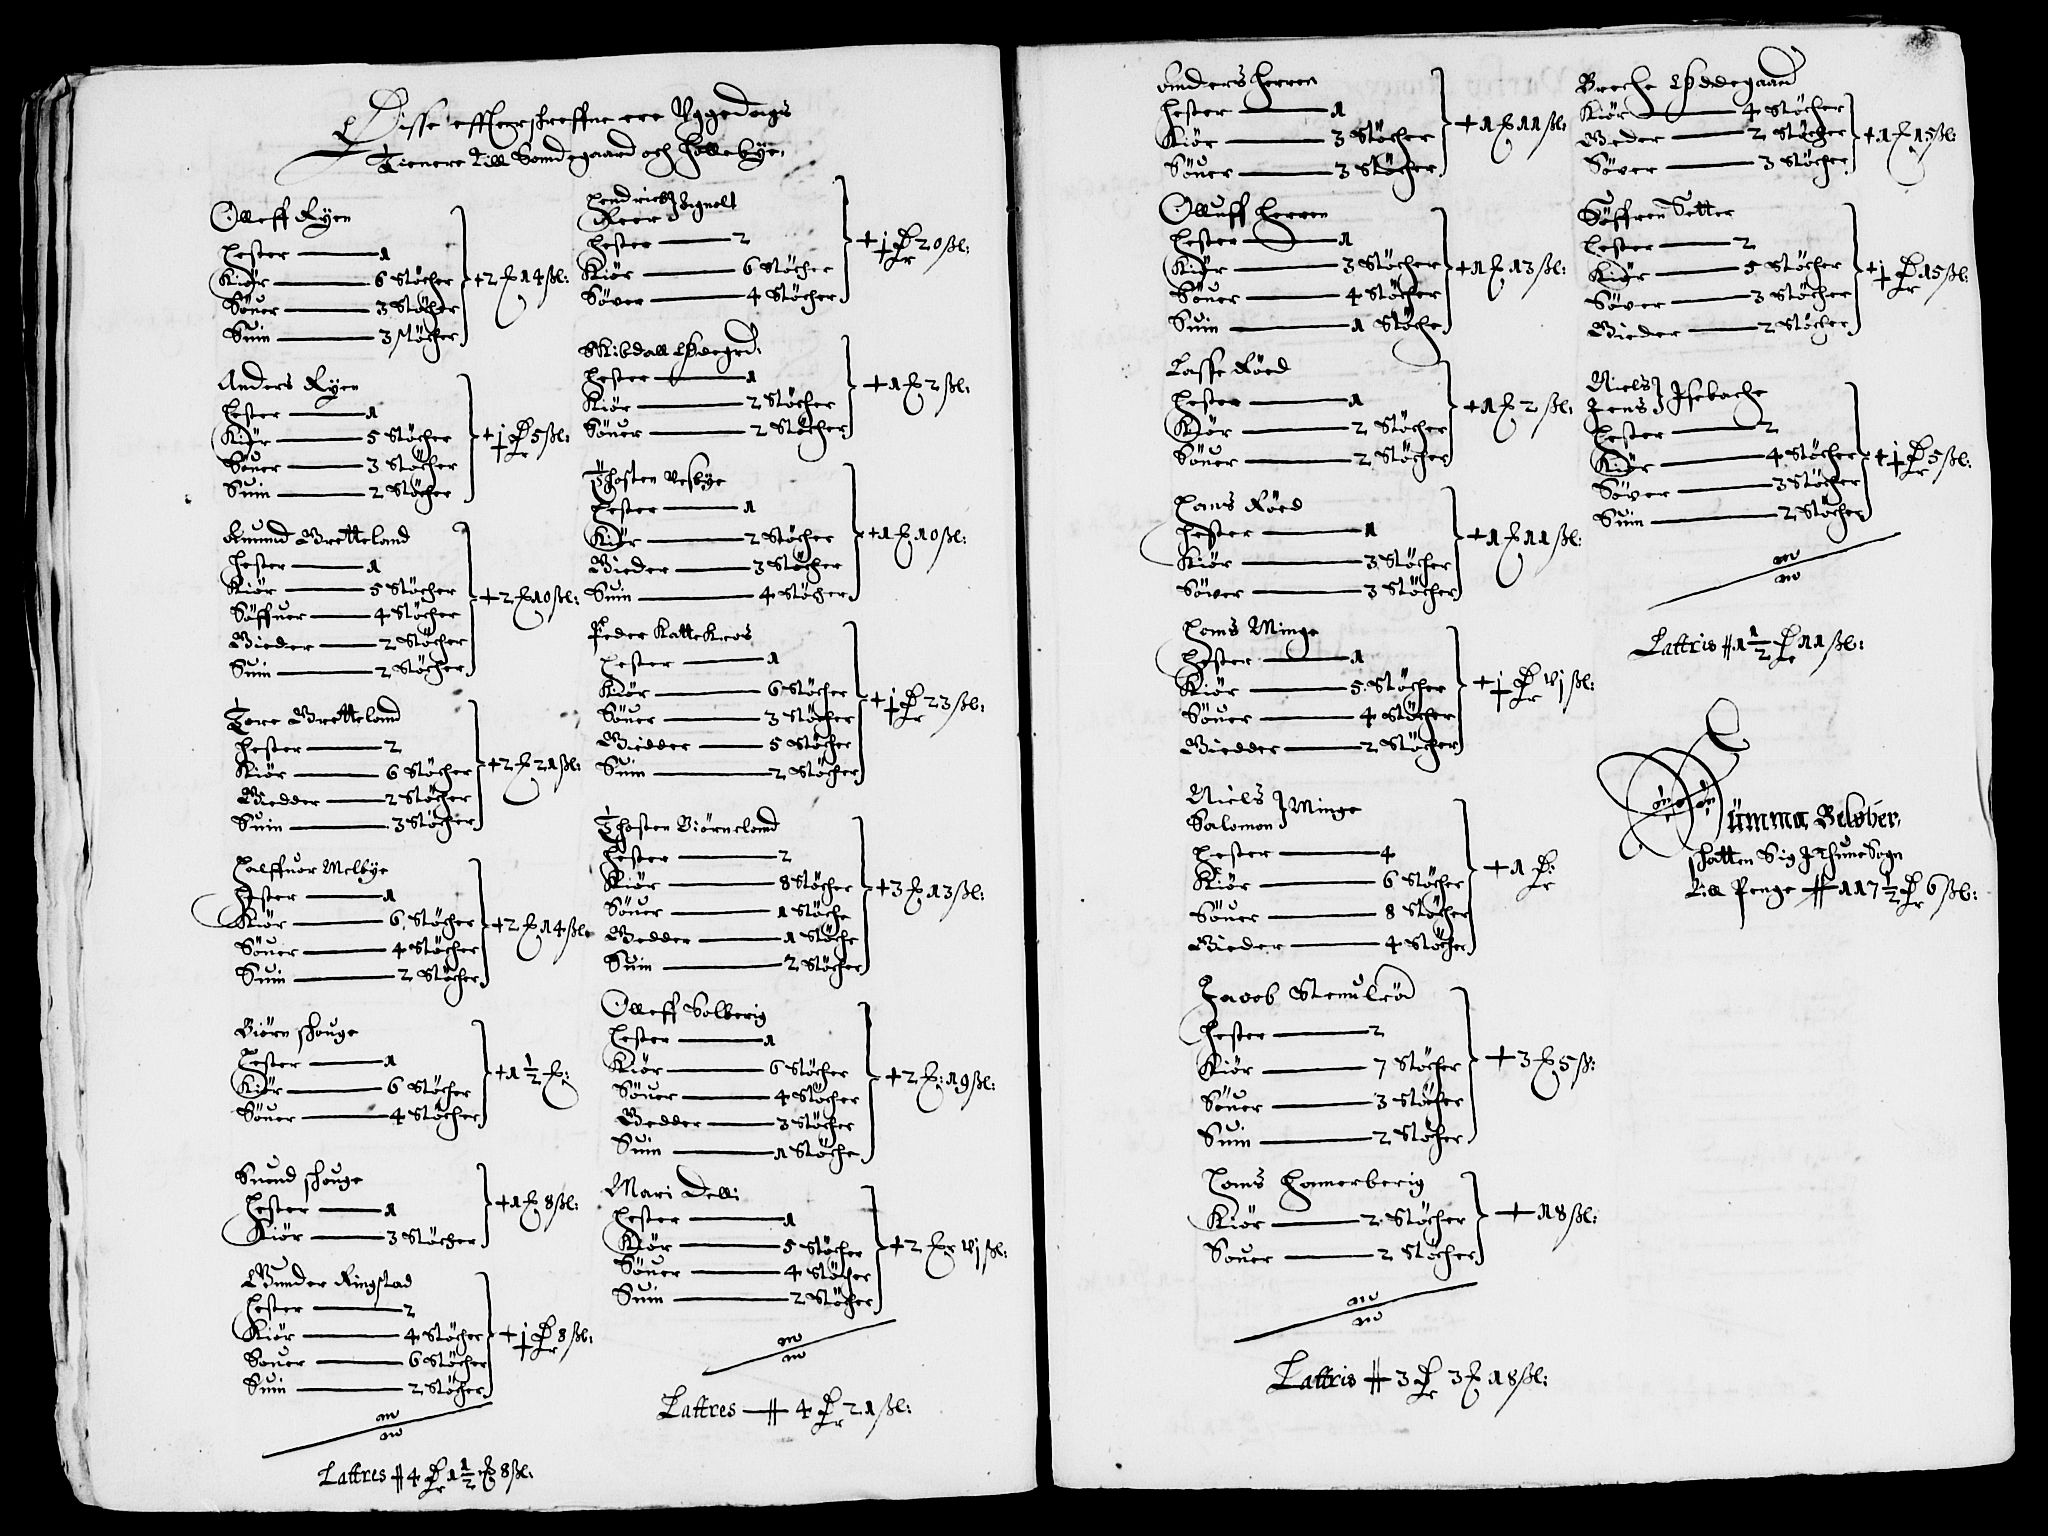 Disse effterskreffne ere Uggedags
Tienere till Sandegaard och Hollebye,
Olleff Ryen
Hester — 1
Kiör — 6 Stöcher
Söuer — 3 Stöcher
Suin — 3 Stöcher
+ 2 ℔ 14 ßl:
Anders Ryen
Hester — 1
Kiör — 5 Stöcher
Söuer — 3 Stöcher
Suin — 2 Stöcher
+ j Dr 5 ßl:
Amund Gretteland
Hester — 1
Kiör — 5 Stöcher
Söffuer — 4 Stöcher
Gieder — 2 Stöcher
Suin — 2 Stöcher
+ 2 ℔ 10 ßl:
Tore Gretteland
Hester — 2
Kiör — 6 Stöcher
Giedder — 2 Stöcher
Suin — 3 Stöcher
+ 2 ℔ 21 ßl:
Halffuor Melbye
Hester — 1
Kiör — 6 Stöcher
Söuer — 4 Stöcher
Suin — 2 Stöcher
+ 2 ℔ 14 ßl
Biörn skouge
Hester — 1
Kiör — 6 Stöcher
Söuer — 4 Stöcher
+ 1 1/2 ℔:
Suend skouge
Hester — 1
Kiör — 3 Stöcher
+ 1 ℔ 8 ßl:
Gunder Ringstad
Hester — 2
Kiör — 4 Stöcher
Souer — 6 Stöcher
Suin — 2 Stöcher
+ j Dr 8 ßl:
Lattres # 4 Dr 1 1/2 ℔ 8 ßl:
Hendrich } Rignolt
Reer
Hester — 2
Kiör — 6 Stöcher
Söver — 4 Stöcher
+ j Dr 20 ßl:
Skibdall Ödegrd:
Hester — 1
Kiör — 2 Stöcher
Söuer — 2 Stöcher
+ 1 ℔ 2 ßl:
Thosten Vesbye
Hester — 1
Kiör — 2 Stöcher
Gieder — 3 Stöcher
Suin — 4 Stöcher
+ 1 ℔ 10 ßl:
Peder Kattekros
Hester — 1
Kiör — 6 Stöcher
Söuer — 3 Stöcher
Giedder — 5 Stöcher
Suin — 2 Stöcher
+ j Dr 23 ßl:
Thosten Biörneland
Hester — 2
Kiör — 8 Stöcher
Söuer — 1 Stöche
Gedder — 1 Stöche
Suin — 2 Stöcher
+ 3 ℔ 13 ßl:
Olleff Solberig
Hester — 1
Kiör — 6 Stöcher
Söuer — 4 Stöcher
Gedder — 3 Stöcher
Suin — 1 Stöche
+ 2 ℔: 19 ßl:
Mari Delli
Hester — 1
Kiör — 5 Stöcher
Söuer — 4 Stöcher
Suin — 2 Stöcher
+ 2 ℔ vj ßl:
Lattres # 4 Dr 21 ßl:
Anders Herren
Hester — 1
Kiör — 3 Stöcher
Söuer — 3 Stöcher
+ 1 ℔ 11 ßl:
Olluff Herren
Hester — 1
Kiör — 3 Stöcher
Söuer — 4 Stöcher
Suin — 1 Stöche
+ 1 ℔ 13 ßl:
Lasse Röed
Hester — 1
Kiör — 2 Stöcher
Söuer — 2 Stöcher
+ 1 ℔ 2 ßl:
Hans Röed
Hester — 1
Kiör — 3 Stöcher
Söver — 3 Stöcher
+ 1 ℔ 11 ßl:
Hans Minge
Hester — 1
Kiör — 5 Stöcher
Söuer — 4 Stöcher
Giedder — 2 Stöcher
+ j Dr vj ßl:
Niels } Minge
Salomon
Hester — 4
Kiör — 6 Stöcher
Söuer — 8 Stöcher
Gieder — 4 Stöcher
+ 1 Dr
Jacob Stemulröd
Hester — 2
Kiör — 7 Stöcher
Söuer — 3 Stöcher
Suin — 2 Stöcher
+ 3 ℔ 5 ß:
Hans Hamerberig
Kiör — 2 Stöcher
Souer — 2 Stöcher
+ 18 ßl:
Lattris # 3 Dr 3 ℔ 18 ßl:
Breche Ödegaard
Kiör — 4 Stöcher
Gieder — 2 Stöcher
Söver — 3 Stöcher
+ 1 ℔ 15 ßl:
Söffren Setter
Hester — 2
Kiör — 5 Stöcher
Söver — 3 Stöcher
Gieder — 2 Stöcher
+ j Dr 15 ßl:
Niels } Isebache
Jens
Hester — 2
Kiör — 4 Stöcher
Söver — 3 Stöcher
Suin — 2 Stöcher
+ j Dr 5 ßl:
Lattris # 1 1/2 Dr 11 ßl:
Summa Beløber
skatten Sig J Thune Sogn
till Penge # 117 1/2 Dr 6 ßl: